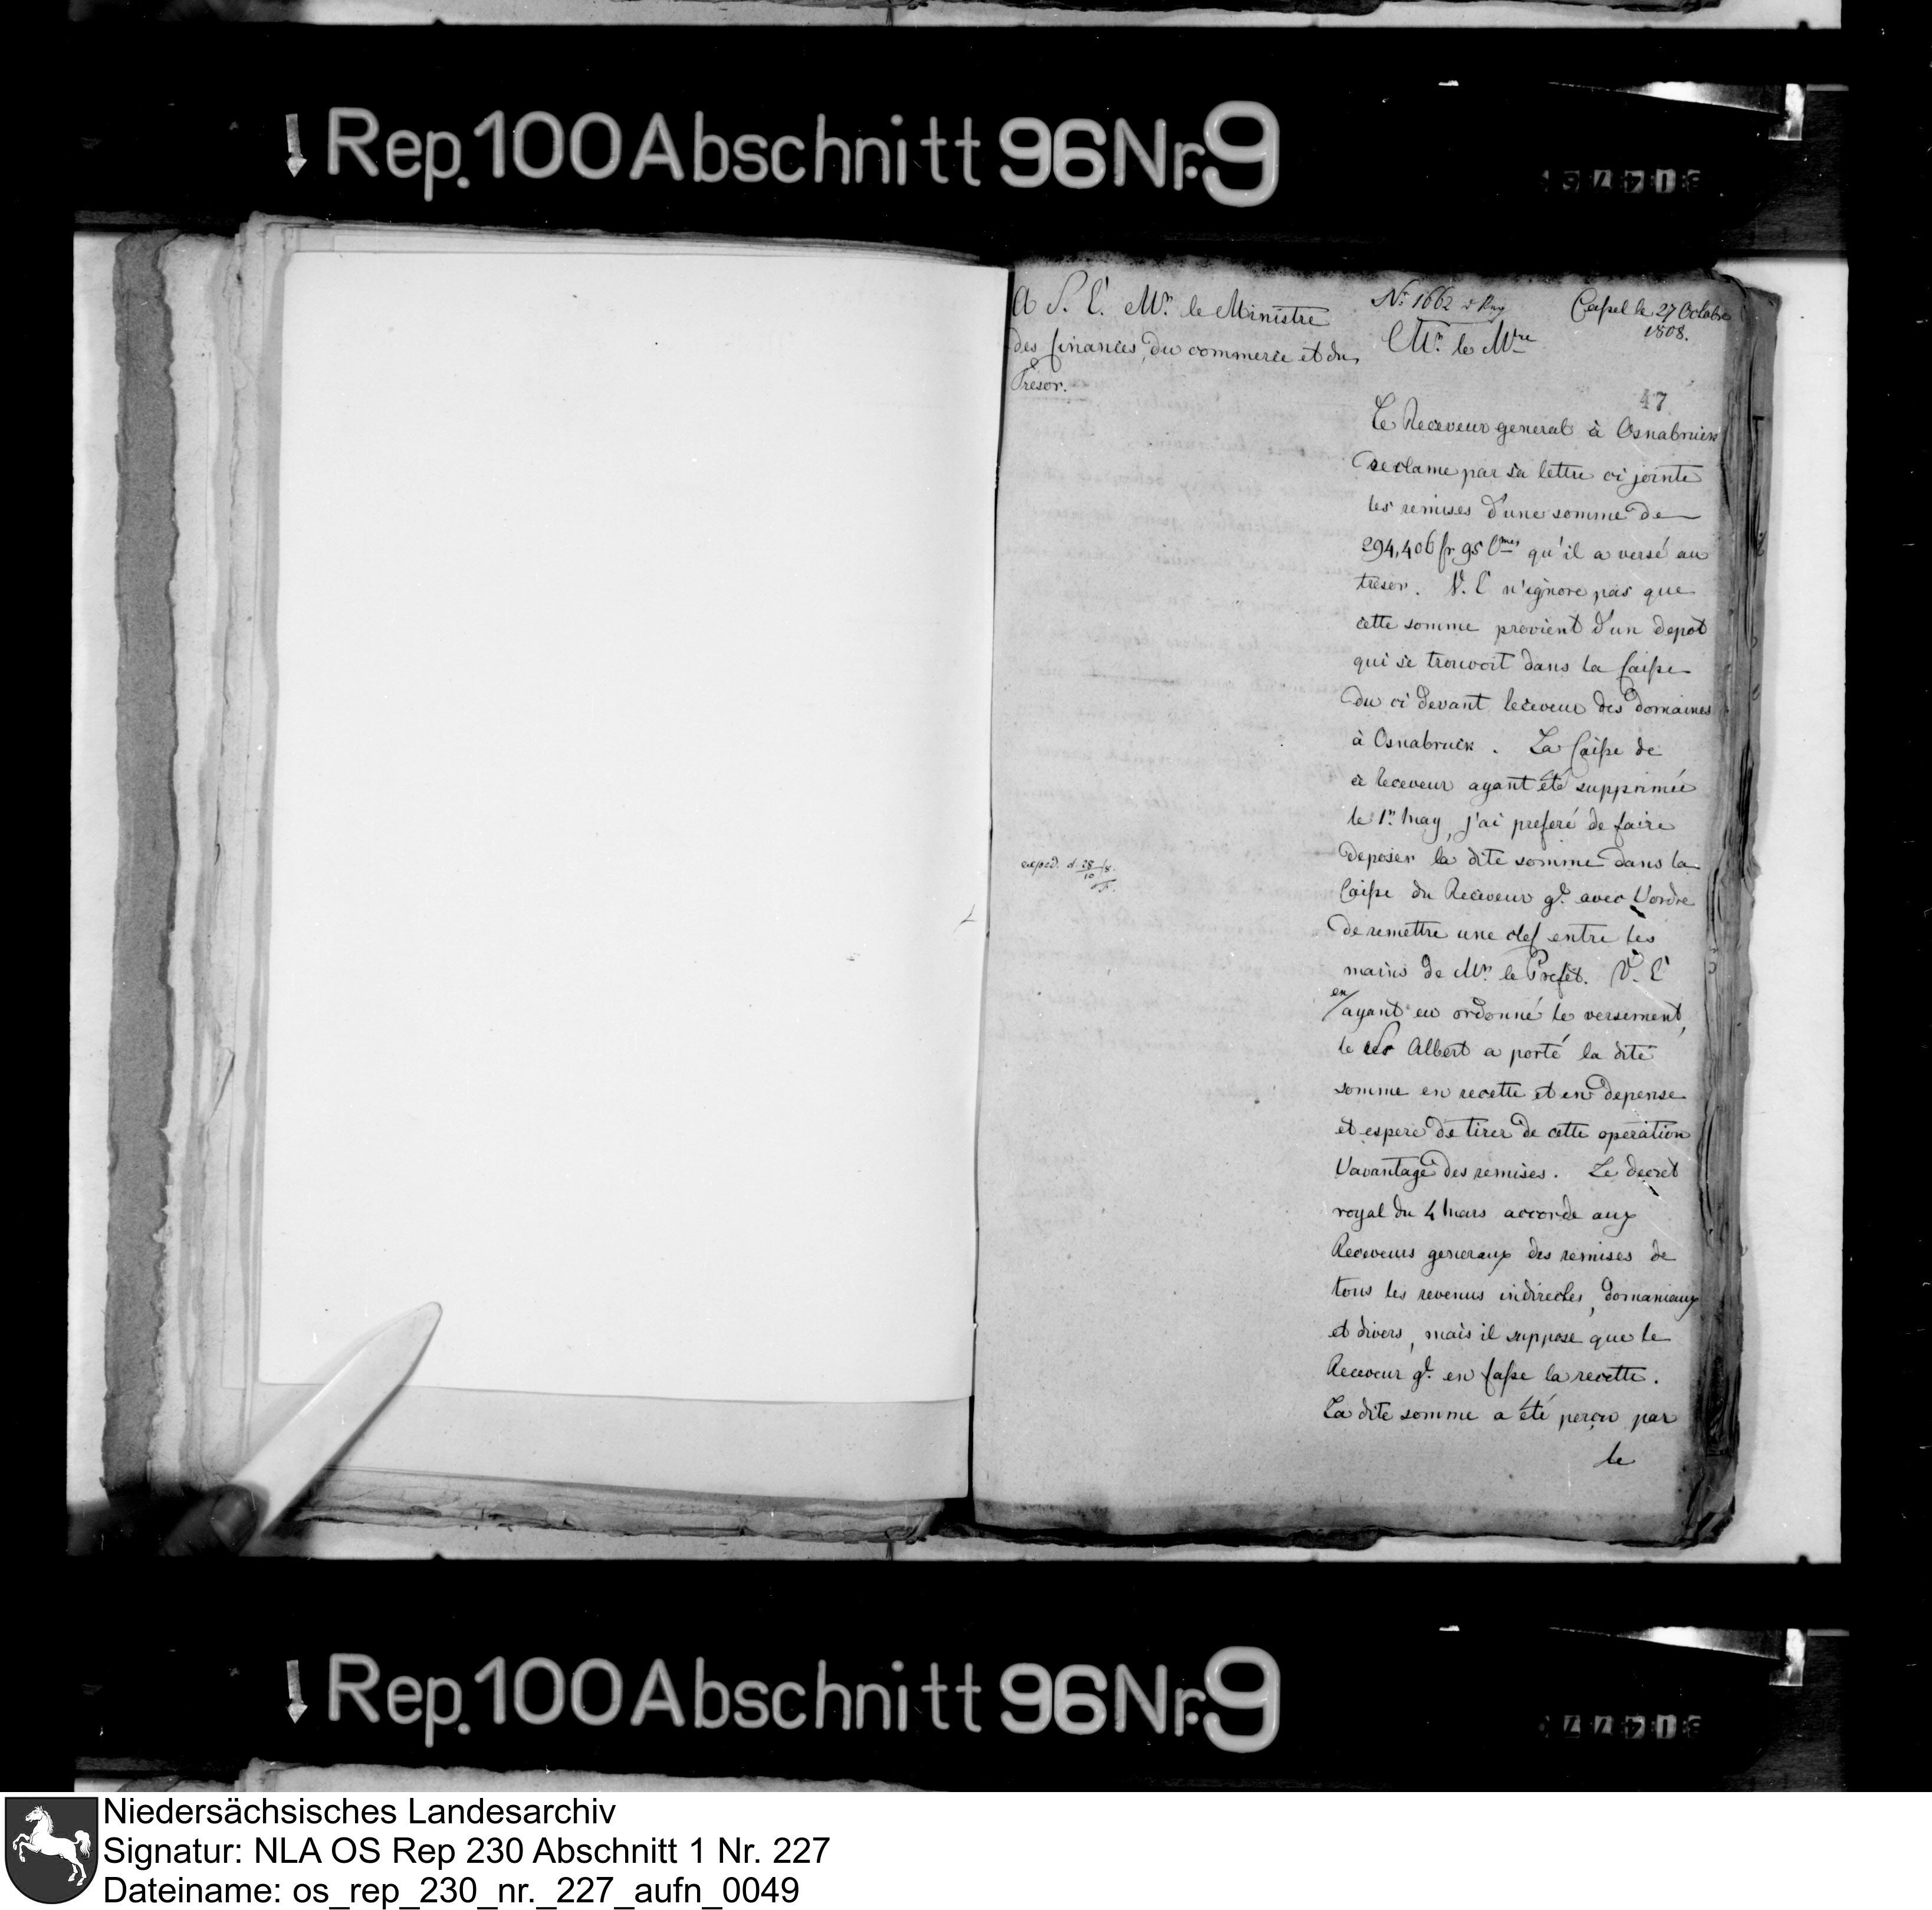 Rep. 100 Abschnitt 96 Nr. 9
A S. E. Mr. le Ministre
des finances, du commerce et du
Trésor.
Nr. 1662
Cassel le 27 Octobre
1808.
Mr. le Mtre
47
Le Receveur general à Osnabruck
reclame par sa lettre ci jointe
les remises d'une somme de
294,406 fr 95 Cmes qu'il a versé au
trésor. V. E n'ignore pas que
cette somme provient d'un depot
qui se trouvoit dans la Caisse
du ci devant receveur des domaines
à Osnabruck. La Caisse de
ce receveur ayant été supprimée
le 1r. may, j'ai preferé de faire
deposer la dite somme dans la
Caisse du Receveur gl. avec l'ordre
de remettre une clef entre les
mains de Mr. le Prefet. V. E
en
ayant eu ordonné le versement,
le Albert a porté la dite
somme en recette et en depense
et espere de tirer de cette operation
l'avantage des remises. Le decret
royal du 4 Mars accorde aux
Receveurs generaux des remises de
tous les revenus indirectes, domaniaux
et divers, mais il suppose que le
Receveur gl. en fasse la recette.
La dite somme a été perçu par
le
exped. d. 28/10 8.
Rep. 100 Abschnitt 96 Nr. 9
Niedersächsisches Landesarchiv
Signatur: NLA OS Rep 230 Abschnitt 1 Nr. 227
Dateiname: os_rep_230_nr._227_aufn_0049